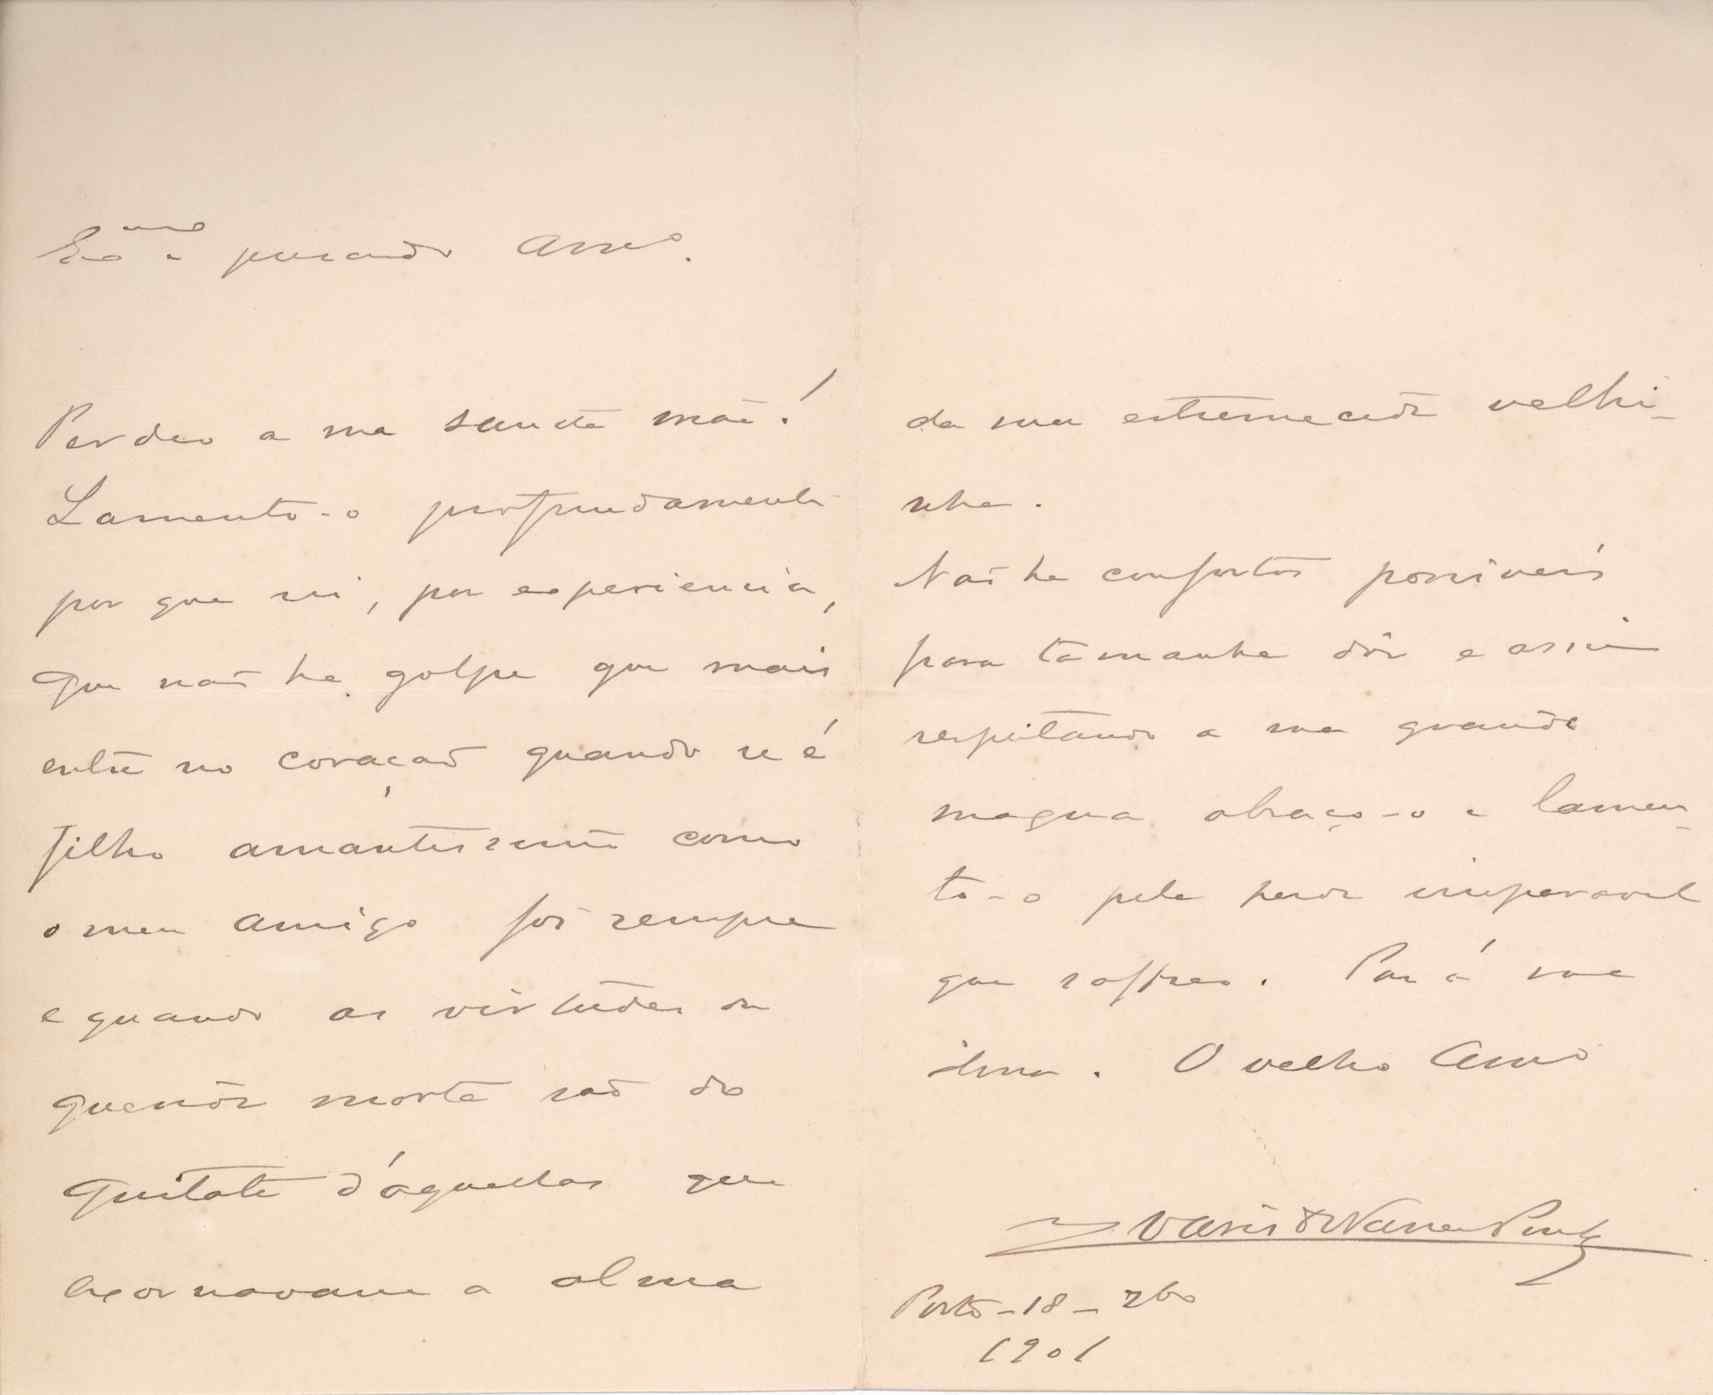 Exmo e presado Amo.
Perdeu a sua sancta mãe!
Lamento-o profundamente
por que sei, por experiencia,
que não ha golpe que mais
entre no coração quando se é
filho amantissimo como
o meu amigo foi sempre
e quando as virtudes da
querida morta são do
quilate d'aquellas que
exornavam a alma
da sua estremecida velhi-
nha.
Não ha confortos possiveis
para tamanha dôr e assim
respeitando a sua grande
magua abraço-o e lamen-
to-o pela perda irreparavel
que soffreu. Paz á sua
alma. O velho Amo
Porto - 18 - 7bo
1901